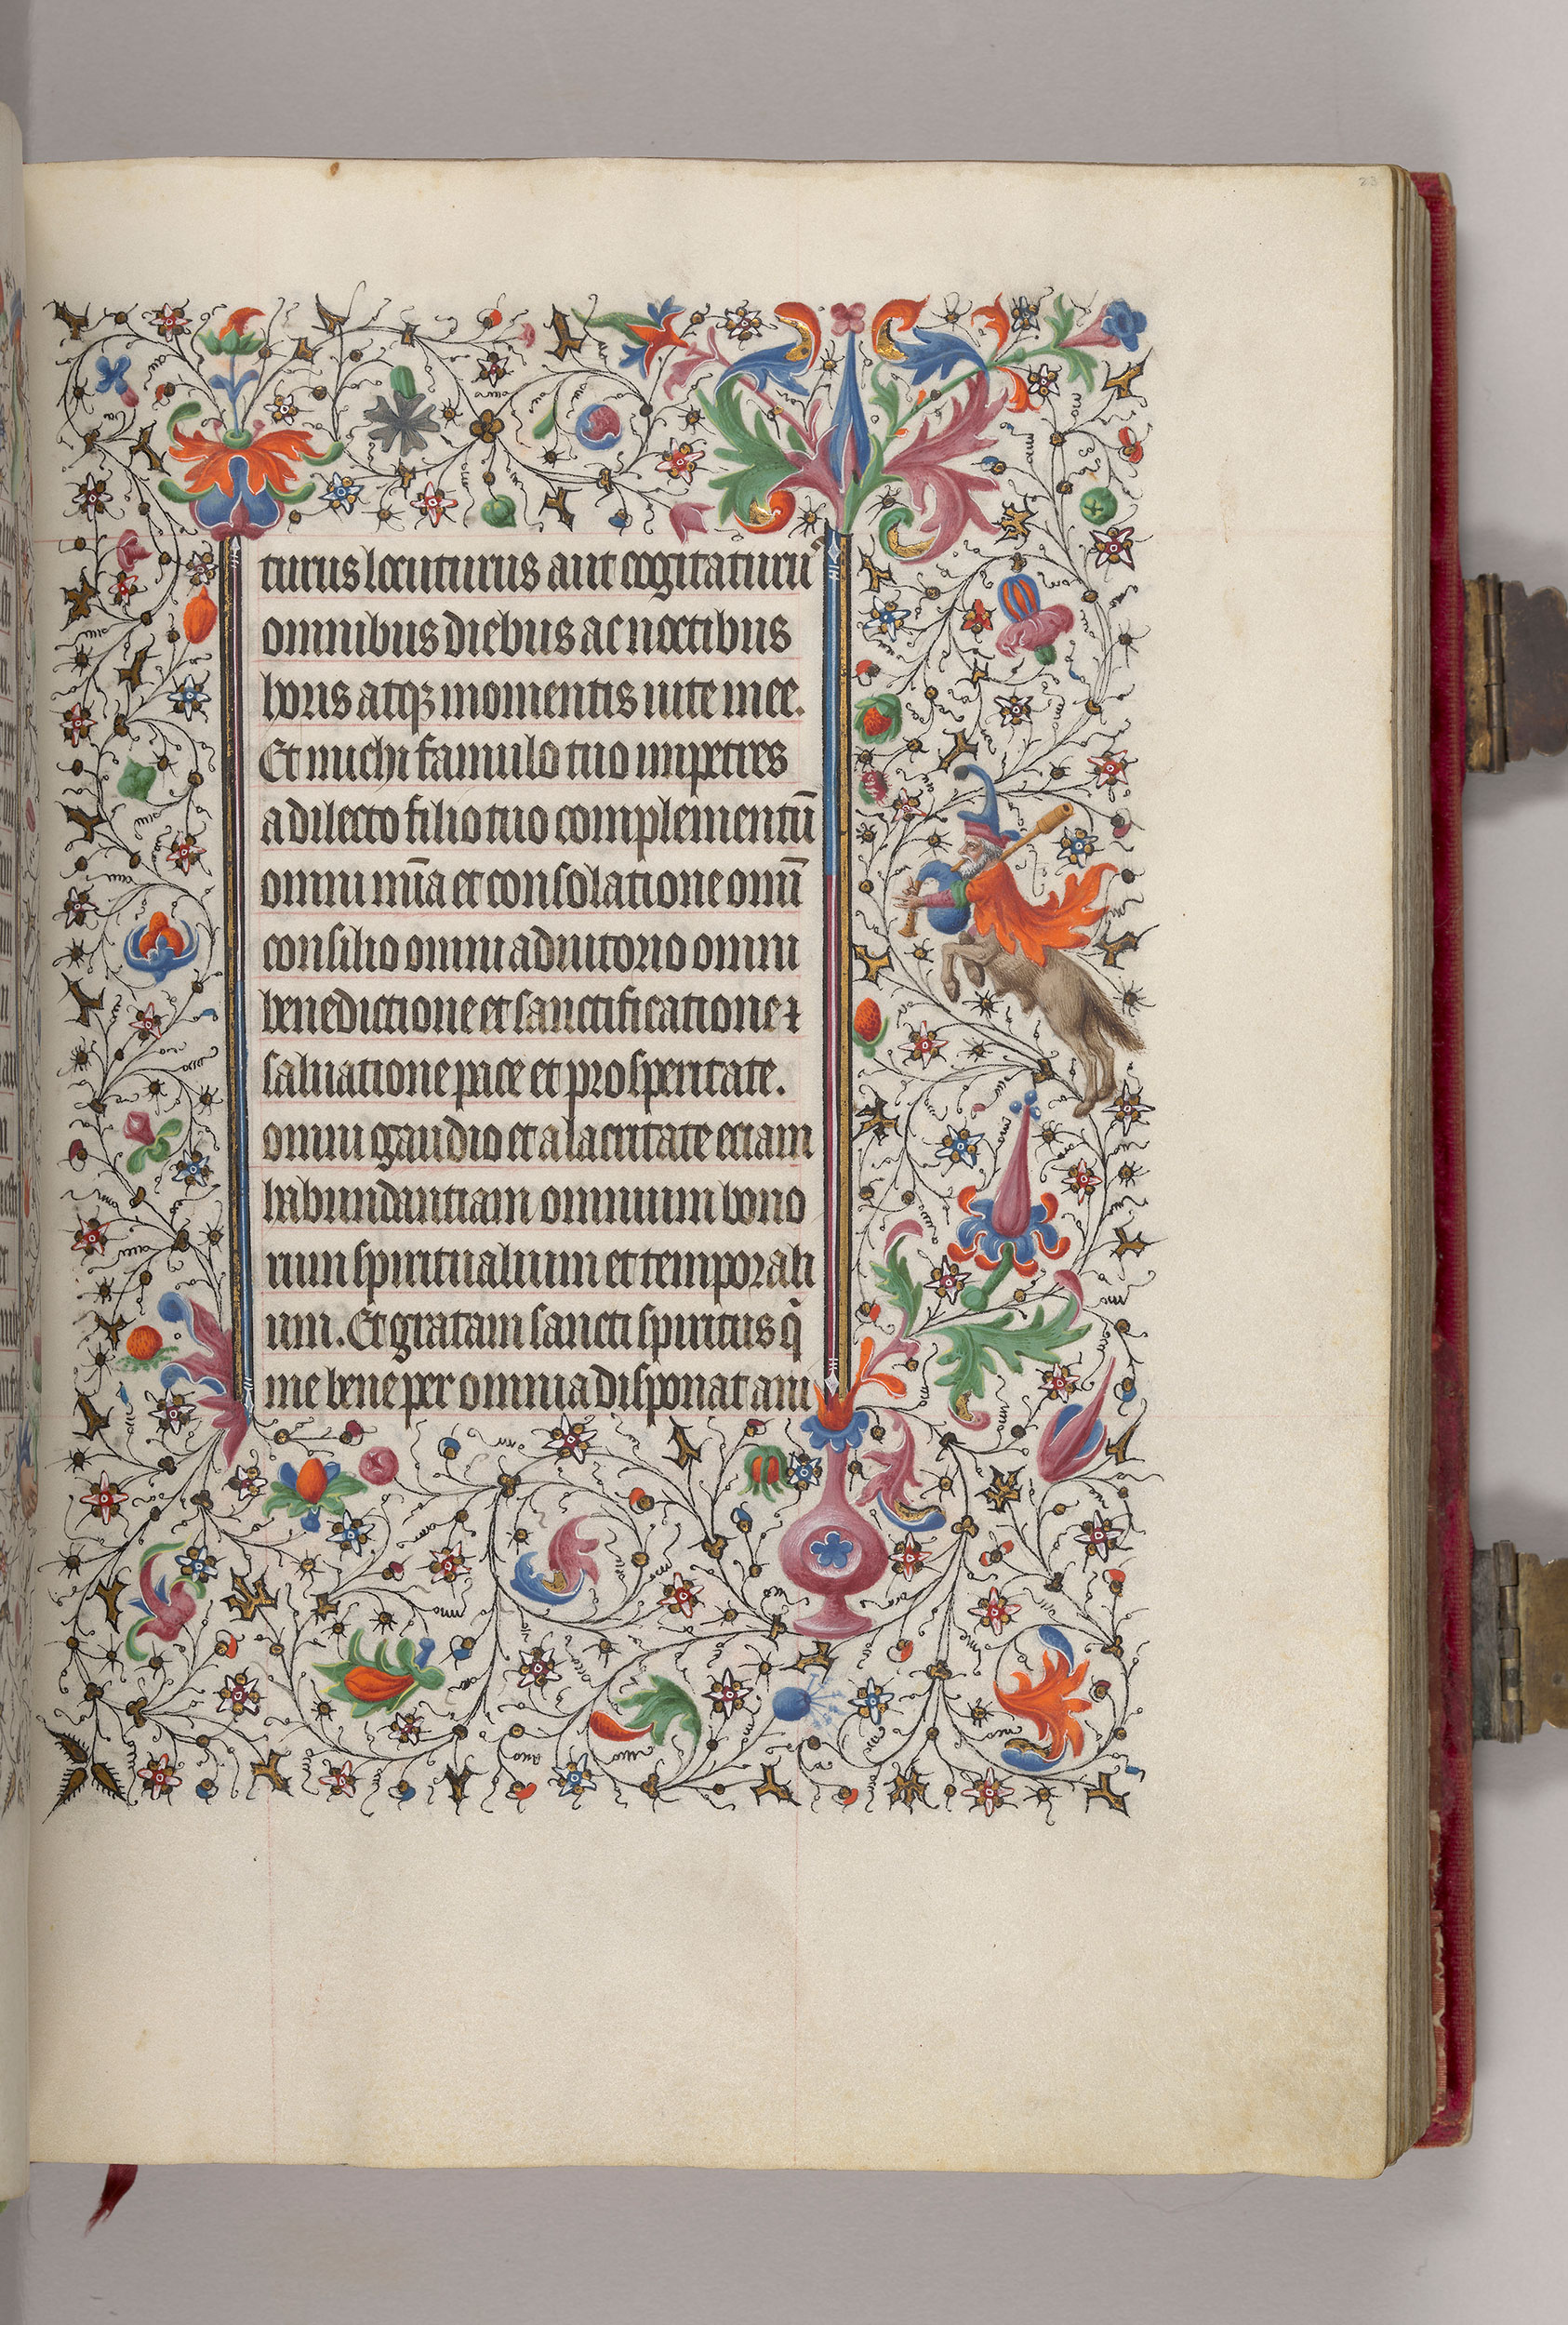 23
turus locuturus aut cogitaturꝰ
omnibus diebus ac noctibus
horis atqꝫ momentis uite mee.
Et michi famulo tuo impetres
a dilecto filio tuo complementū
omni mīa et consolatione omī
consilio omni adiutorio omni
benedictione et sanctificatione ⁊
saluatione pace et prosperitate.
omni gaudio et alacritate etiam
habundantiam omnium bono
rum spiritualium et temporali
um. Et gratiam sancti spiritus q̄
me bene per omnia disponat ani